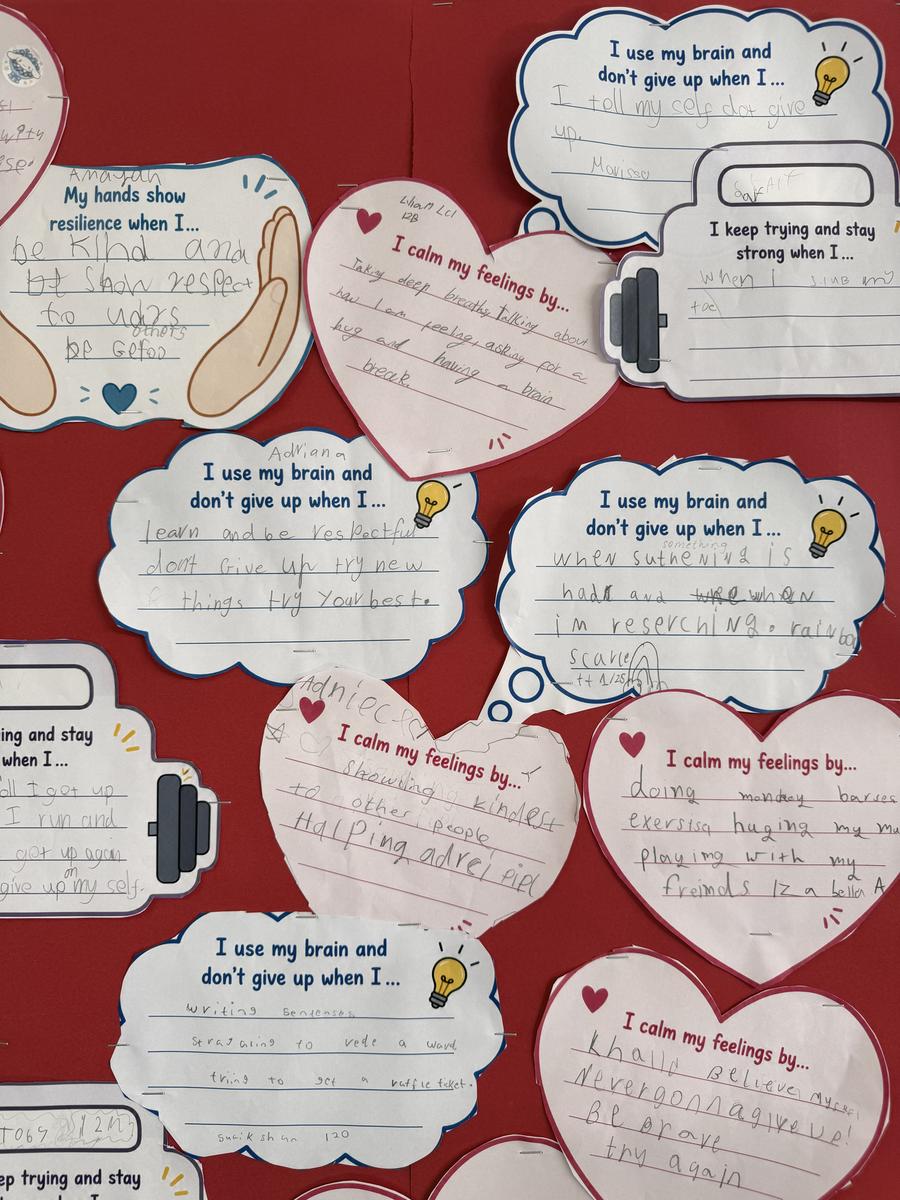 wity
ise.
Amayah
My hands show
resilience when I...
be Kind and
bt Show respect
to udrs
others
be
I use my brain and
don't give up when I...
I tell my self dot give
up.
Marissa
I calm my feelings by...
Taking deep breaths, Talking about
how I am feeling, asking for a
hug and having a brain
break.
I keep trying and stay
strong when I...
When I sTUB my
toe
Adriana
I use my brain and
don't give up when I...
learn and be respectful
dont Give up try new
things try Your best.
I use my brain and
don't give up when I...
something
when sutheNiNg is
hadR and when
im reserchiNg. rainbow
scarle
ing and stay
when I...
all I get up
I run and
get up again
on
give up my self.
I calm my feelings by...
showiing kindest
to other people
HalPing adrei pipl
I calm my feelings by...
doing monkey barses
exersisa huging my mu
playing with my
freinds Iz a bella A
I use my brain and
don't give up when I...
writing sentenses
stragaling to rede a ward
triing to get a raffle ticket.
120
I calm my feelings by...
Khalid Believe myself
Never gonna give up!
Be brave
try again
eep trying and stay